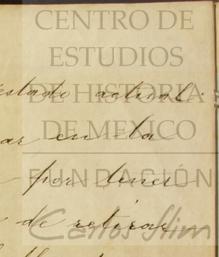 CENTRO DE
ESTUDIOS
DE HISTORIA
DE MEXICO
FUNDACIÓN
Carlos Slim
estado actual
ar en la
por tener
de retirar